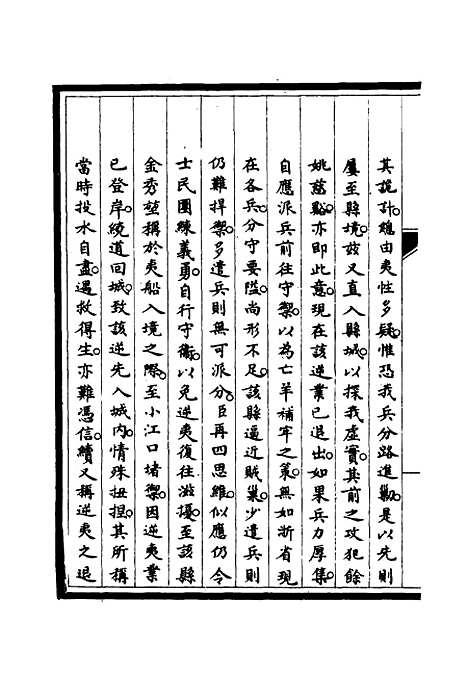 其詭計。總由夷性多疑。惟恐我兵分路進勦。是以先則
屢至縣境。茲又直入縣城。以探我虛實。其前之攻犯餘
姚慈谿。亦即此意。現在該逆業已退出。如果兵力厚集。
自應派兵前往守禦。以為亡羊補牢之策。無如浙省現
在各兵。分守要隘。尚形不足。該縣逼近賊巢。少遣兵則
仍難捍禦。多遣兵則無可派分。臣再四思維。似應仍令
士民團練義勇。自行守衞。以免逆夷復往滋擾。至該縣
金秀堃稱於夷船入境之際。至小江口堵禦。因逆夷業
已登岸。繞道回城。致該逆先入城內。情殊扭揑。其所稱
當時投水自盡。遇救得生。亦難憑信。續又稱逆夷之退